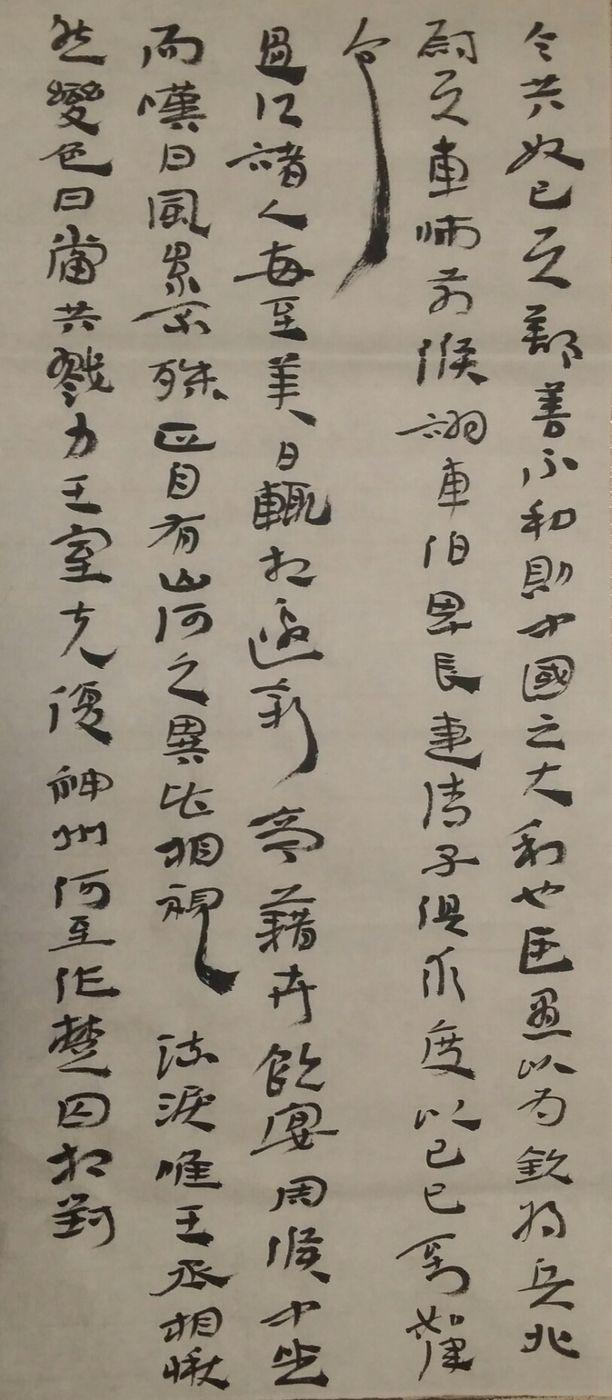 今共奴已之鄯善不和則中國之大利也臣愚以為欽將兵北
尉之車師前候詡車伯卑長連清子俱求度以己巳到如律
令
過江諸人每至美日輒相邀新亭藉卉飲宴周候中坐
而嘆曰風景不殊正自有山河之異皆相視流淚唯王丞相愀
然變色曰當共戮力王室克復神州何至作楚囚相對